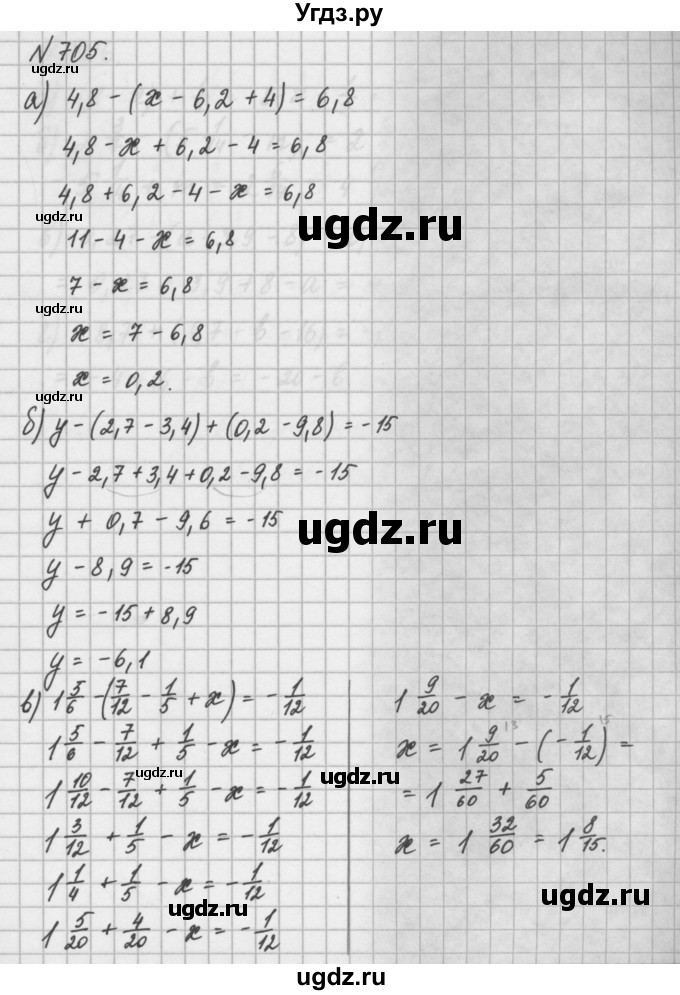 Угдз.ру
N 705.
ugdz.ru
а) 4,8 - (x - 6,2 + 4) = 6,8
4,8 - x + 6,2 - 4 = 6,8
4,8 + 6,2 - 4 - x = 6,8
ugdz.ru
ugdz.ru
11 - 4 - x = 6,8
7 - x = 6,8
ugdz.ru
x = 7 - 6,8
x = 0,2.
ugdz.ru
б) y - (2,7 - 3,4) + (0,2 - 9,8) = -15
y - 2,7 + 3,4 + 0,2 - 9,8 = -15
y + 0,7 - 9,6 = -15
ugdz.ru
y - 8,9 = -15
y = -15 + 8,9
y = -6,1
ugdz.ru
в) 1 5/6 - (7/12 - 1/5 + x) = - 1/12
1 5/6 - 7/12 + 1/5 - x = - 1/12
ugdz.ru
ugdz.ru
1 10/12 - 7/12 + 1/5 - x = - 1/12
1 3/12 + 1/5 - x = - 1/12
1 1/4 + 1/5 - x = - 1/12
ugdz.ru
1 5/20 + 4/20 - x = - 1/12
1 9/20 - x = - 1/12
x = 1 9/20 - (- 1/12) =
= 1 27/60 + 5/60
x = 1 32/60 = 1 8/15.
ugdz.ru
ugdz.ru